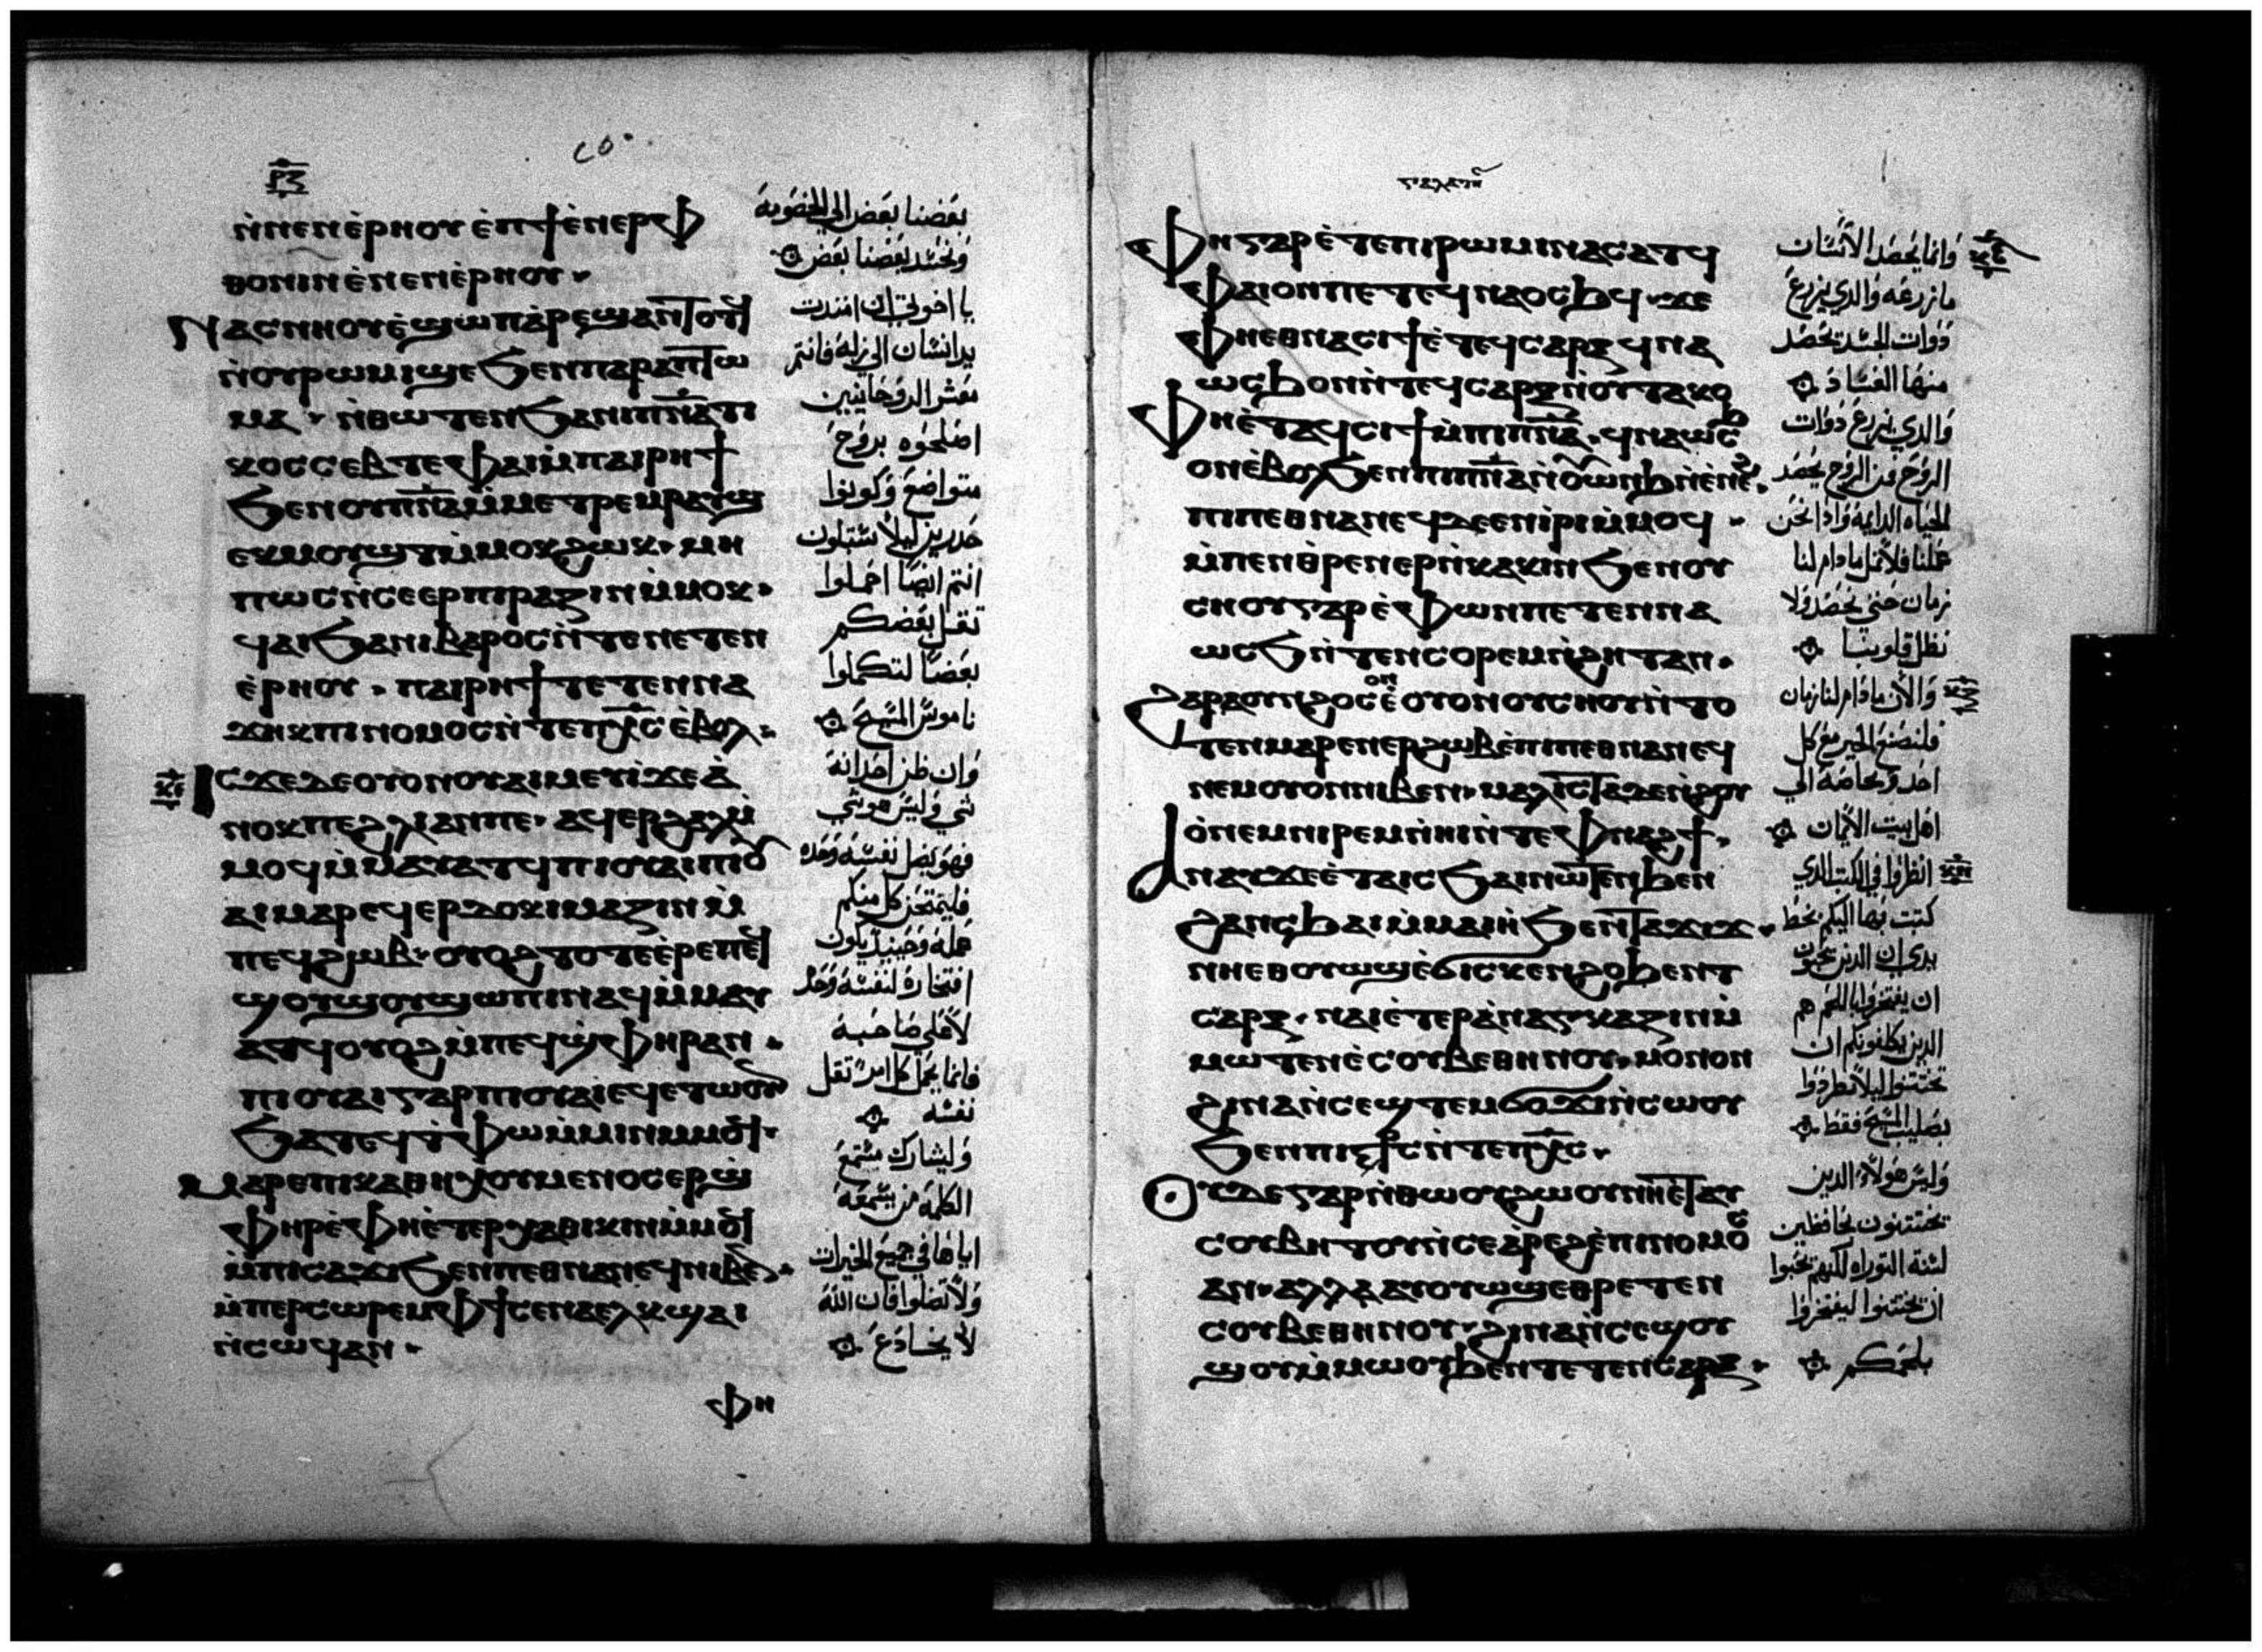 ⲣ̅ⲍ̅
ⲛ̀ⲛⲉⲛⲉ̀ⲣⲏⲟⲩ ⲉ̀ⲡϯⲉ̀ⲛⲉⲣⲫ
ⲑⲟⲛⲓⲛ ⲉ̀ⲛⲉⲛⲉ̀ⲣⲏⲟⲩ
ⲛⲁⲥⲛⲏⲟⲩ ⲉ̀ϣⲱⲡ ⲁ̀ⲣⲉϣⲁⲛ
ⲛ̀ⲟⲩⲣⲱⲙⲓ ϣⲉ ϧⲉⲛⲡⲁⲣⲁⲡⲧⲱ
ⲙⲁ ⲛ̀ⲑⲱⲧⲉⲛ ϧⲁⲛⲓⲡ̅ⲛ̅ⲁ̅ⲧⲓ
ⲕⲟⲥ ⲥⲉⲃⲧⲉ ⲫⲁⲓ ⲙ̀ⲡⲁⲓⲣⲏϯ
ϧⲉⲛⲟⲩⲡ̅ⲛ̅ⲁ̅ ⲙ̀ⲙⲉⲧⲣⲉⲙⲣⲁⲩϣ
ⲉⲕⲙⲟⲩϣⲧ ⲙ̀ⲙⲟⲕ ϩⲱⲕ ⲙⲏ
ⲡⲱⲥ ⲛ̀ⲥⲉⲉⲣⲡⲓⲣⲁⲍⲓⲛ ⲙ̀ⲙⲟⲕ
ϥⲁⲓ ϧⲁⲛⲓⲃⲁⲣⲟⲥ ⲛ̀ⲧⲉⲛⲉⲧⲉⲛ
ⲉ̀ⲣⲏⲟⲩ ⲡⲁⲓⲣⲏϯ ⲧⲉⲧⲉⲛⲛⲁ
ϫⲏⲕ ⲡⲓⲛⲟⲙⲟⲥ ⲛ̀ⲧⲉⲡⲭ̅ⲥ̅ ⲉ̀ⲃⲟⲗ
ⲓⲥϫⲉ ⲇⲉ ⲟⲩⲟⲛ ⲟⲩⲁⲓ ⲙⲉⲩⲓ̀ ϫⲉ ⲁ̀
ⲛⲟⲕ ⲡⲉ ϩⲗⲓ ⲁⲛ ⲡⲉ ⲁϥⲉⲣϩⲁⲗ ⲙ̀
ⲙⲟϥ ⲙ̀ⲙⲁⲩⲁⲧϥ ⲡⲓⲟⲩⲁⲓ ⲡⲓⲟⲩ
ⲁⲓ ⲙⲁⲣⲉϥⲉⲣⲇⲟⲕⲓⲙⲁⲍⲓⲛ ⲙ̀
ⲡⲉϥϩⲱⲃ ⲟⲩⲟϩ ⲧⲟⲧⲉ ⲉ̀ⲣⲉⲡⲉϥ
ϣⲟⲩϣⲟⲩ ϣⲱⲡⲓ ⲛⲁϥ ⲙ̀ⲙⲁⲩ
ⲁⲧϥ ⲟⲩⲟϩ ⲙ̀ⲡⲉϥϣ̀ⲫⲏⲣ ⲁⲛ
ⲡⲓⲟⲩⲁⲓ ⲅⲁⲣ ⲡⲓⲟⲩⲁⲓ ⲉϥⲉⲧⲱⲟⲩⲛ
ϧⲁⲧⲉϥⲉ̀ⲧⲫⲱ ⲙ̀ⲙⲓⲛ ⲙ̀ⲙⲟϥ
ⲙⲁⲣⲉⲡⲓⲕⲁⲑⲏⲭⲟⲩⲙⲉⲛⲟⲥ ⲉⲣϣ̀
ⲫⲏⲣ ⲉ̀ⲫⲏ ⲉ̀ⲧⲉⲣⲕⲁⲑⲏⲕⲓⲛ ⲙ̀ⲙⲟϥ
ⲙ̀ⲡⲓⲥⲁϫⲓ ϧⲉⲛⲡⲉⲑⲛⲁⲛⲉϥ ⲛⲓⲃⲉⲛ
ⲙ̀ⲡⲉⲣⲥⲱⲣⲉⲙ ⲫϯ ⲥⲉⲛⲁⲉⲗⲕϣⲁⲓ
ⲛ̀ⲥⲱϥ ⲁⲛ
ⲫⲏ
بعضنا بعض الي الخصومة
ونحسد بعضنا بعض
يا اخوتي ان امتدت
يد انسان الي زلة فانتم
معشر الروحانيين
اصلحوه بروح
متواضع وكونوا
حذرين ليلا تبتلون
انتم ايضا احملوا
ثقل بعضكم
بعضا لتكملوا
ناموس المسيح
وان ظن احد انه
شي وليس هو شي
فهو يضل نفسه وحده
فليمتحن كل منكم
عمله وحينيد يكون
افتخاره لنفسه وحد
لا علي صاحبه
فانما يحمل كل امر ثقل
نفسه
وليشارك مستمع
الكلمة من يسمعه
اياها في جميع الخيرات
ولا تضلوا فان الله
لا يخادع
ⲅⲁⲗⲁⲧⲏ
ⲫⲏ ⲅⲁⲣ ⲉ̀ⲧⲉⲡⲓⲣⲱⲙⲓ ⲛⲁⲥⲁⲧϥ
ⲫⲁⲓ ⲟⲛ ⲡⲉⲧⲉϥⲛⲁⲟⲥϧϥ ϫⲉ
ⲫⲏⲉⲑⲛⲁⲥⲓϯ ⲉ̀ⲧⲉϥⲥⲁⲣⲝ ϥⲛⲁ
ⲱⲥϧ ⲟⲛ ⲛ̀ⲧⲉϥⲥⲁⲣⲝ ⲛ̀ⲟⲩⲧⲁⲕⲟ
ⲫⲏ ⲉ̀ⲧⲁϥⲥⲓϯ ⲙ̀ⲡⲓⲡ̅ⲛ̅ⲁ̅ ϥⲛⲁⲱⲥϧ
ⲟⲛ ⲉ̀ⲃⲟⲗ ϧⲉⲛⲡⲓⲡ̅ⲛ̅ⲁ̅ ⲛ̀ⲟⲩⲱⲛϧ ⲛ̀ⲉ̀ⲛⲉϩ
ⲡⲓⲡⲉⲑⲛⲁⲛⲉϥ ⲇⲉ ⲉⲛⲓ̀ⲣⲓ ⲙ̀ⲙⲟϥ
ⲙ̀ⲡⲉⲛⲑ̀ⲣⲉⲛⲉⲣⲛ̀ⲕⲁⲕⲓⲛ ϧⲉⲛⲟⲩ
ⲥⲏⲟⲩ ⲅⲁⲣ ⲉ̀ⲫⲱⲛ ⲡⲉⲧⲉⲛⲛⲁ
ⲱⲥϧ ⲛ̀ⲧⲉⲛⲥⲟⲣⲉⲙ ⲛ̀ϩⲏⲧ ⲁⲛ
ϩⲁⲣⲁ ⲟⲩⲛ ϩⲟⲥ ⲉ̀ⲟⲩⲟⲛ ⲟⲩⲥⲏⲟⲩ ⲛ̀ⲧⲟ
ⲧⲉⲛ ⲙⲁⲣⲉⲛⲉⲣϩⲱⲃ ⲉ̀ⲡⲓⲡⲉⲑⲛⲁⲛⲉϥ
ⲛⲉⲙ ⲟⲩⲟⲛ ⲛⲓⲃⲉⲛ ⲙⲁⲗⲓⲥⲧⲁ ⲇⲉ ⲛ̀ϩⲟⲩ
ⲟ̀ ⲛⲉⲙ ⲛⲓⲣⲉⲙⲛ̀ⲏⲓ ⲛ̀ⲧⲉⲫⲛⲁϩϯ
ⲁⲛⲁⲩ ϫⲉ ⲉ̀ⲧⲁⲓⲥϧⲁⲓ ⲛⲱⲧⲉⲛ ϧⲉⲛ
ϩⲁⲛⲥϧⲁⲓ ⲙ̀ⲙⲁⲓⲏ ϧⲉⲛⲧⲁϫⲓϫ
ⲛⲏⲉⲑⲟⲩⲱϣ ⲉ̀ϭⲓⲥⲕⲉⲛϩⲟ ϧⲉⲛⲧ
ⲥⲁⲣⲝ ⲛⲁⲓ ⲉ̀ⲧⲉⲣⲁ̀ⲛⲁⲅⲕⲁⲍⲓⲛ ⲙ̀
ⲙⲱⲧⲉⲛ ⲉ̀ⲥⲟⲩⲃⲉ ⲑⲏⲛⲟⲩ ⲙⲟⲛⲟⲛ
ϩⲓⲛⲁ ⲛ̀ⲥⲉϣⲧⲉⲙϭⲟϫⲓ ⲛ̀ⲥⲱⲟⲩ
ϧⲉⲛⲡⲓⲥ̅ⲧ̅ⲥ̅ ⲛ̀ⲧⲉⲡⲭ̅ⲥ̅
ⲟⲩⲇⲉ ⲅⲁⲣ ⲛ̀ⲑⲱⲟⲩ ϩⲱⲟⲩ ⲛⲏ ⲉ̀ⲧⲁⲩ
ⲥⲟⲩⲃⲏⲧⲟⲩ ⲛ̀ⲥⲉⲁ̀ⲣⲉϩ ⲉ̀ⲡⲓⲛⲟⲙⲟⲥ
ⲁⲛ ⲁⲗⲗⲁ ⲁⲩⲟⲩⲱϣ ⲉⲑⲣⲉⲧⲉⲛ
ⲥⲟⲩⲃⲉ ⲑⲏⲛⲟⲩ ϩⲓⲛⲁ ⲛ̀ⲥⲉϣⲟⲩ
ϣⲟⲩ ⲙ̀ⲙⲱⲟⲩ ϧⲉⲛⲧⲉⲧⲉⲛⲥⲁⲣⲝ
وانما يحصد الانسان
ما زرعه والذي يزرع
ذوات الجسد يحصد
منها الفساد
والذي يزرع ذوات
الروح فمن الروح يحصد
الحياه الدايمة واذا نحن
عملنا فلا نمل ما دام لنا
زمان حتى نحصد ولا
نظل قلوبنا
والان ما دام لنا زمان
فلنصنع الخير مع كل
احد وبخاصة الي
اهل بيت الايمان
انظروا في الكتب الذي
كتبت بها اليكم بخط
يدي ان الذين يحبون
ان يفتخروا باللحم هم
الذين يكلفونكم ان
تختتنوا ليلا يطردوا
بصليب المسيح فقط
وليس هولاء الذين
يختتنون بحافظين
لسنة التوراه لكنهم يحبوا
ان تختتنوا ليفتخروا
بلحمكم